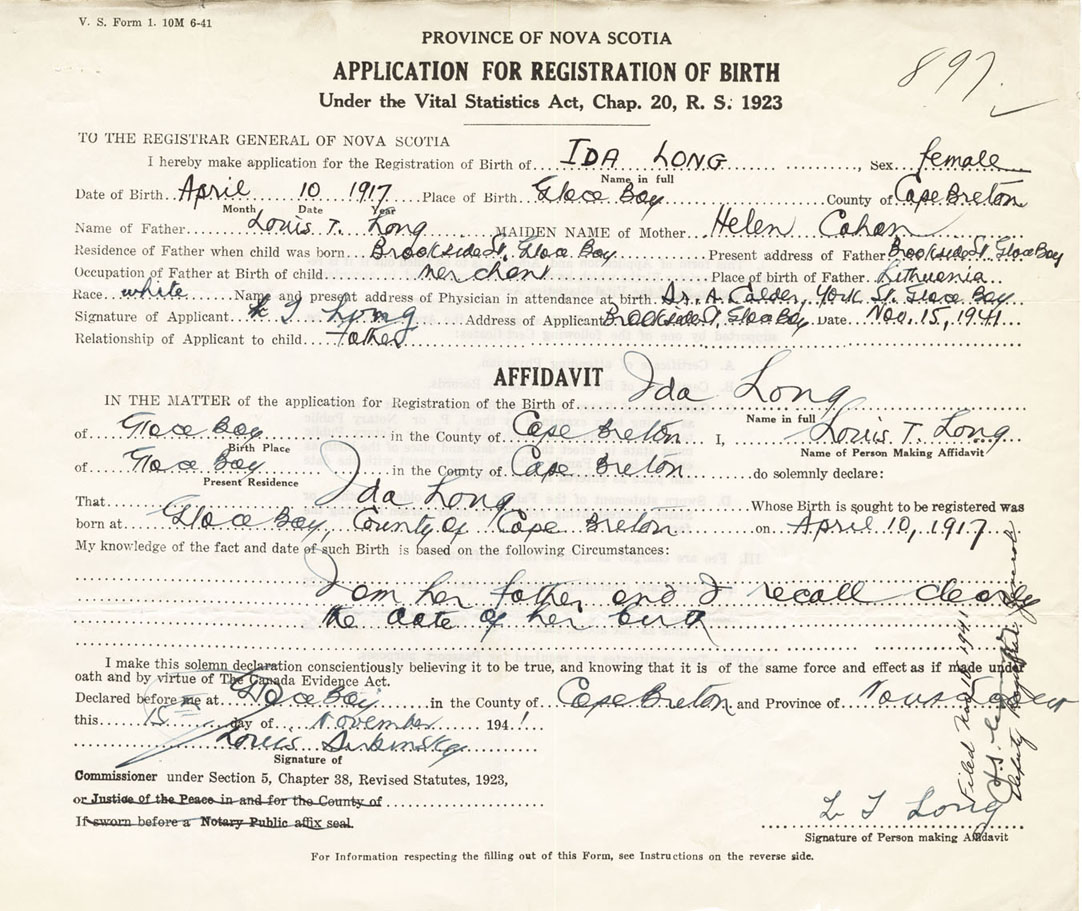 V. S. Form 1. 10M 6-41
PROVINCE OF NOVA SCOTIA
897
APPLICATION FOR REGISTRATION OF BIRTH
Under the Vital Statistics Act, Chap. 20, R. S. 1923
TO THE REGISTRAR GENERAL OF NOVA SCOTIA
I hereby make application for the Registration of Birth of IDA LONG, Sex female
Name in full
Date of Birth April 10 1917 Place of Birth Glace Bay County of Cape Breton
Month Date Year
Name of Father Louis T. Long MAIDEN NAME of Mother Helen Cohan
Residence of Father when child was born Brookside St. Glace Bay Present address of Father Brookside St. Glace Bay
Occupation of Father at Birth of child merchant Place of birth of Father Lithuania
Race white Name and present address of Physician in attendance at birth Dr. A. Calder, York St. Glace Bay
Signature of Applicant L T Long Address of Applicant Brookside St, Glace Bay Date Nov. 15, 1941
Relationship of Applicant to child Father
AFFIDAVIT
IN THE MATTER of the application for Registration of the Birth of Ida Long
Name in full
of Glace Bay in the County of Cape Breton I, Louis T. Long
Birth Place Name of Person Making Affidavit
of Glace Bay in the County of Cape Breton do solemnly declare:
Present Residence
That Ida Long Whose Birth is sought to be registered was
born at Glace Bay, County of Cape Breton on April 10, 1917
My knowledge of the fact and date of such Birth is based on the following Circumstances:
I am her father and I recall clearly
the date of her birth
I make this solemn declaration conscientiously believing it to be true, and knowing that it is of the same force and effect as if made under
oath and by virtue of The Canada Evidence Act.
Declared before me at Glace Bay in the County of Cape Breton and Province of Nova Scotia
this 15th day of November 1941
Louis
Signature of
Commissioner under Section 5, Chapter 38, Revised Statutes, 1923,
or Justice of the Peace in and for the County of
If sworn before a Notary Public affix seal.
L T Long
Signature of Person making Affidavit
Filed Nov 18 1941
Deputy Registrar General
For Information respecting the filling out of this Form, see Instructions on the reverse side.